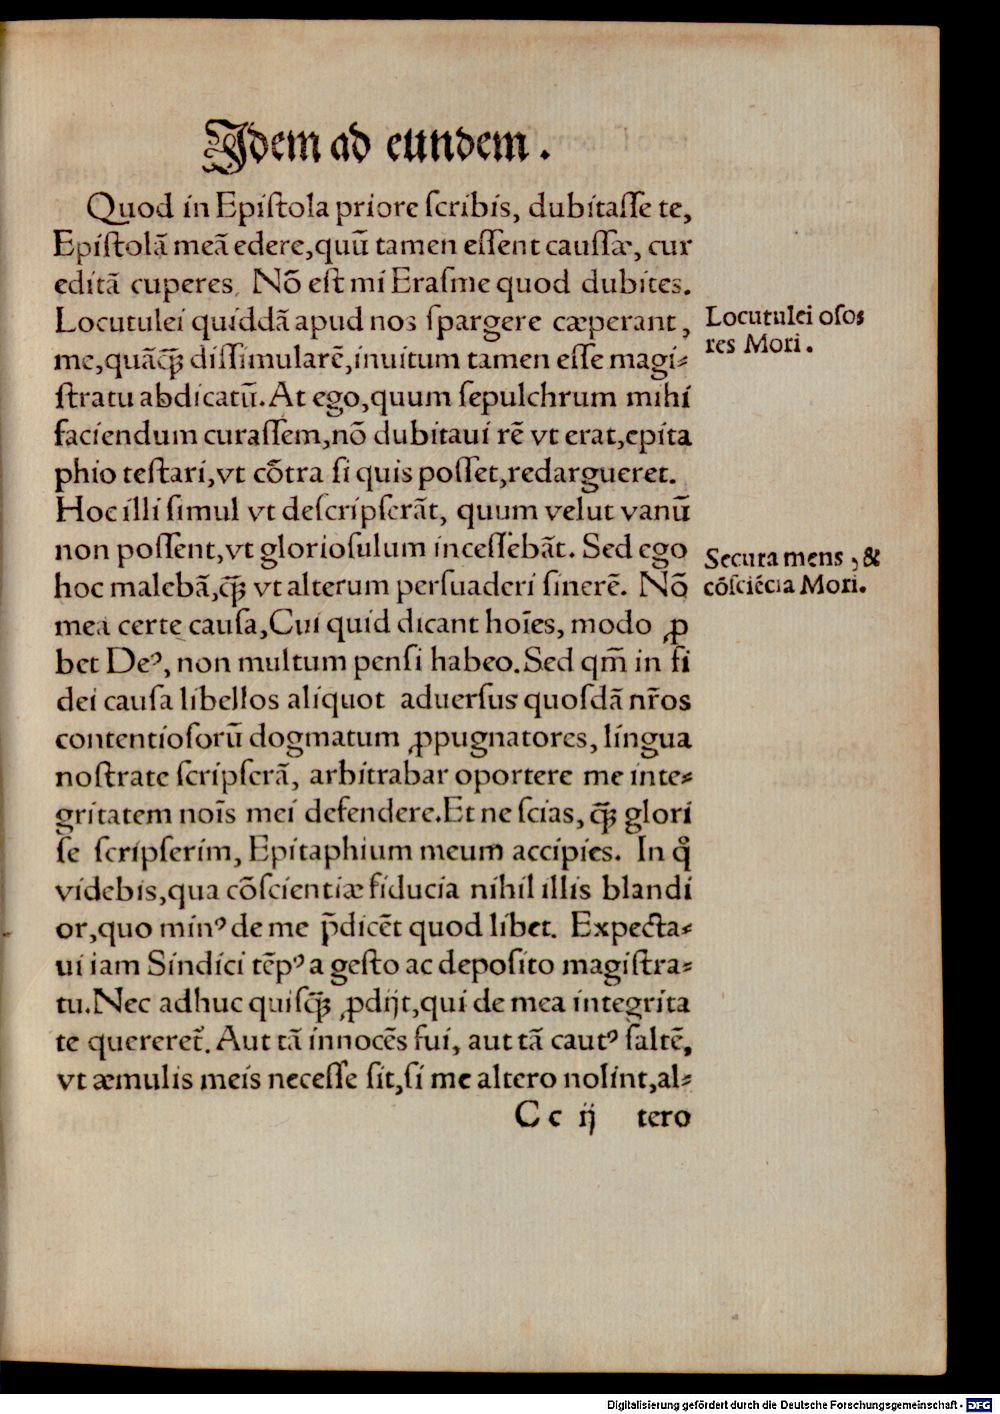 Idem ad eundem.
Quod in Epiſtola priore ſcribis, dubitaſſe te,
Epiſtolã meã edere,quũ tamen eſſent cauſſæ, cur
editã cuperes. Nõ eſt mi Eraſme quod dubites.
Locutulei quiddã apud nos ſpargere cæperant,
Locutulei oſo⸗
res Mori.
me,quãꝙ̃ diſſimularẽ,inuitum tamen eſſe magi⸗
ſtratu abdicatũ.At ego,quum ſepulchrum mihi
faciendum curaſſem,nõ dubitaui rẽ vt erat,epita
phio teſtari,vt cõtra ſi quis poſſet,redargueret.
Hoc illi ſimul vt deſcripſerãt, quum velut vanũ
non poſſent,vt glorioſulum inceſſebãt. Sed ego
Secura mens , &
cõſciẽcia Mori.
hoc malebã,ꝙ̃ vt alterum perſuaderi ſinerẽ. Nõ
mea certe cauſa,Cui quid dicant hoĩes, modo ꝓ
bet Deꝰ, non multum penſi habeo.Sed qm̃ in fi
dei cauſa libellos aliquot aduerſus quoſdã nr̃os
contentioſorũ dogmatum ꝓpugnatores, lingua
noſtrate ſcripſerã, arbitrabar oportere me inte⸗
gritatem noĩs mei defendere.Et ne ſcias, ꝙ̃ glori
ſe ſcripſerim, Epitaphium meum accipies. In q̃
videbis,qua cõſcientiæ fiducia nihil illis blandi
or,quo minꝰ de me p̃dicẽt quod libet. Expecta⸗
ui iam Sindici tẽpꝰ a geſto ac depoſito magiſtra⸗
tu.Nec adhuc quiſꝙ̃ ꝓdijt,qui de mea integrita
te quereret̃. Aut tã innocẽs fui, aut tã cautꝰ ſaltẽ,
vt æmulis meis neceſſe ſit,ſi me altero nolint,al⸗
C c ij tero
Digitalisierung gefördert durch die Deutsche Forschungsgemeinschaft - DFG